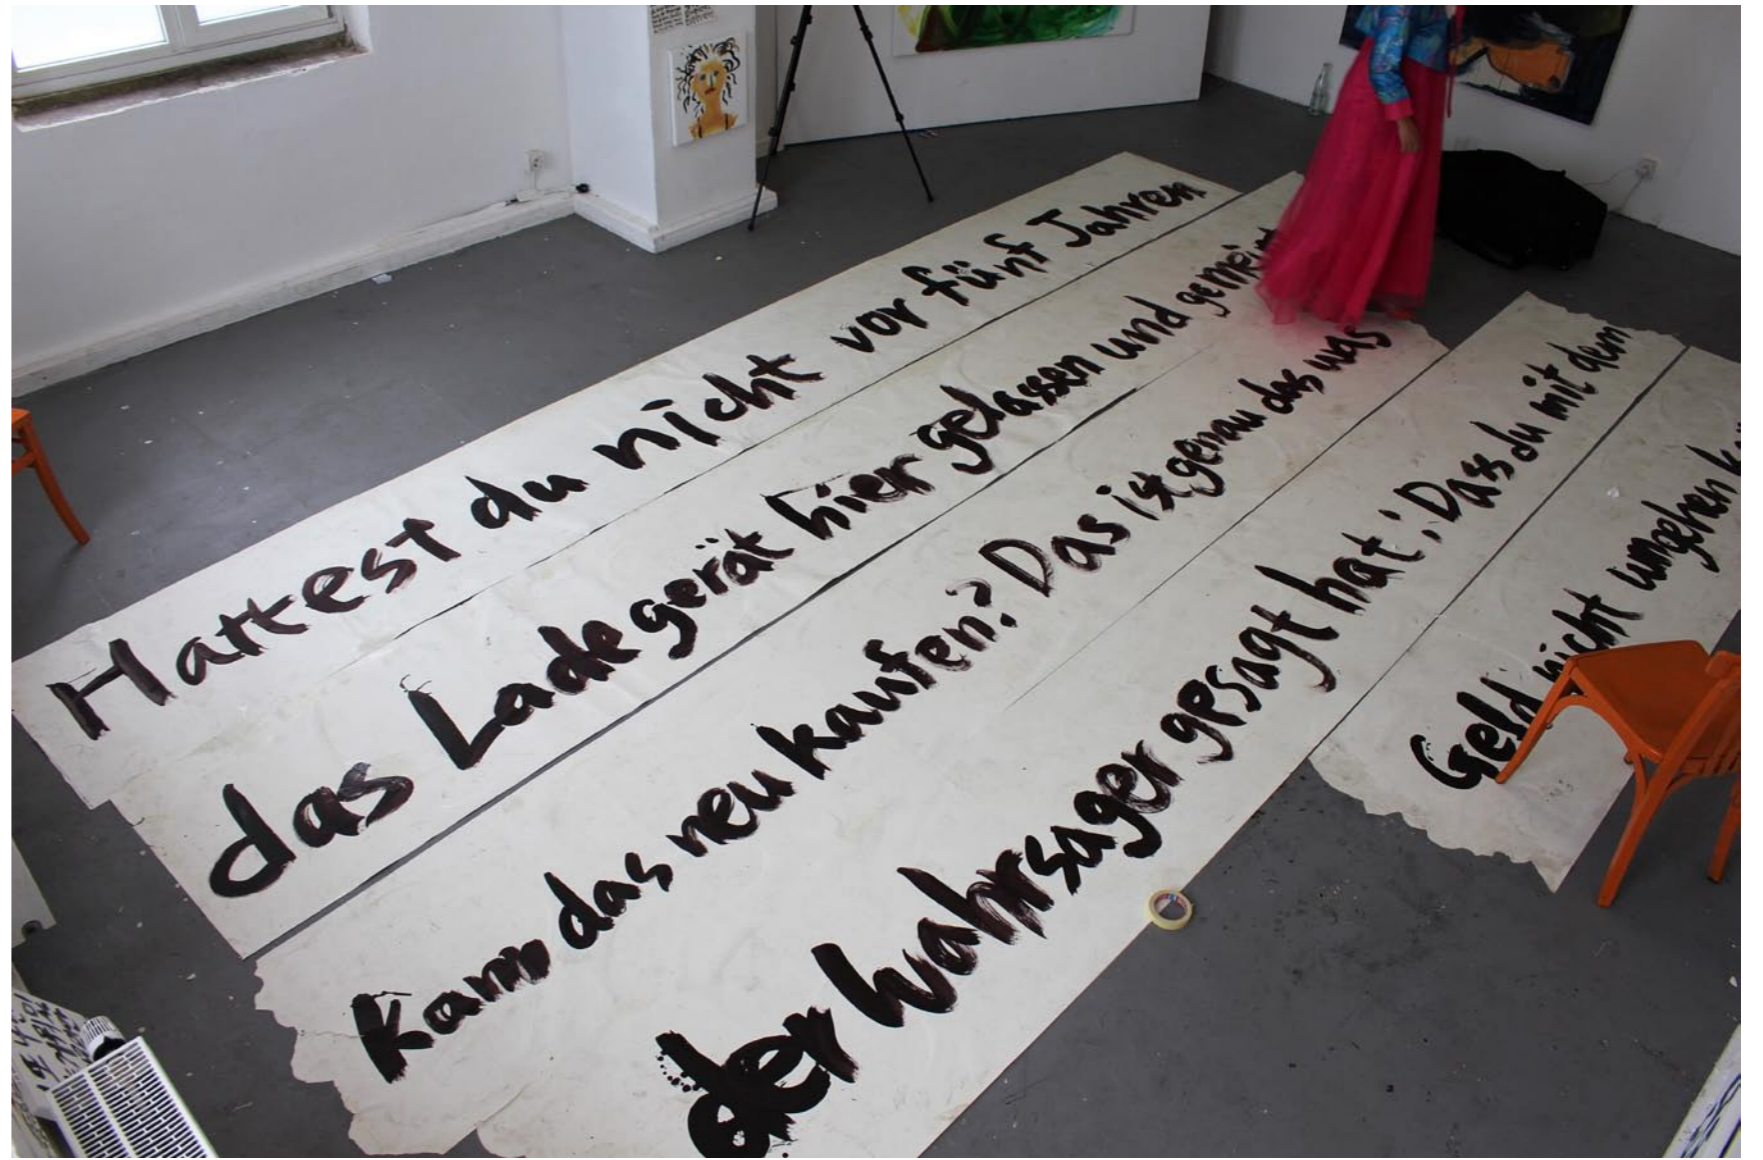 Hattest du nicht vor fünf Jahren
das Ladegerät hier gelassen und gemeint
Kann das neu kaufen? Das ist genau das was
der Wahrsager gesagt hat: Dass du mit dem
Geld nicht umgehen